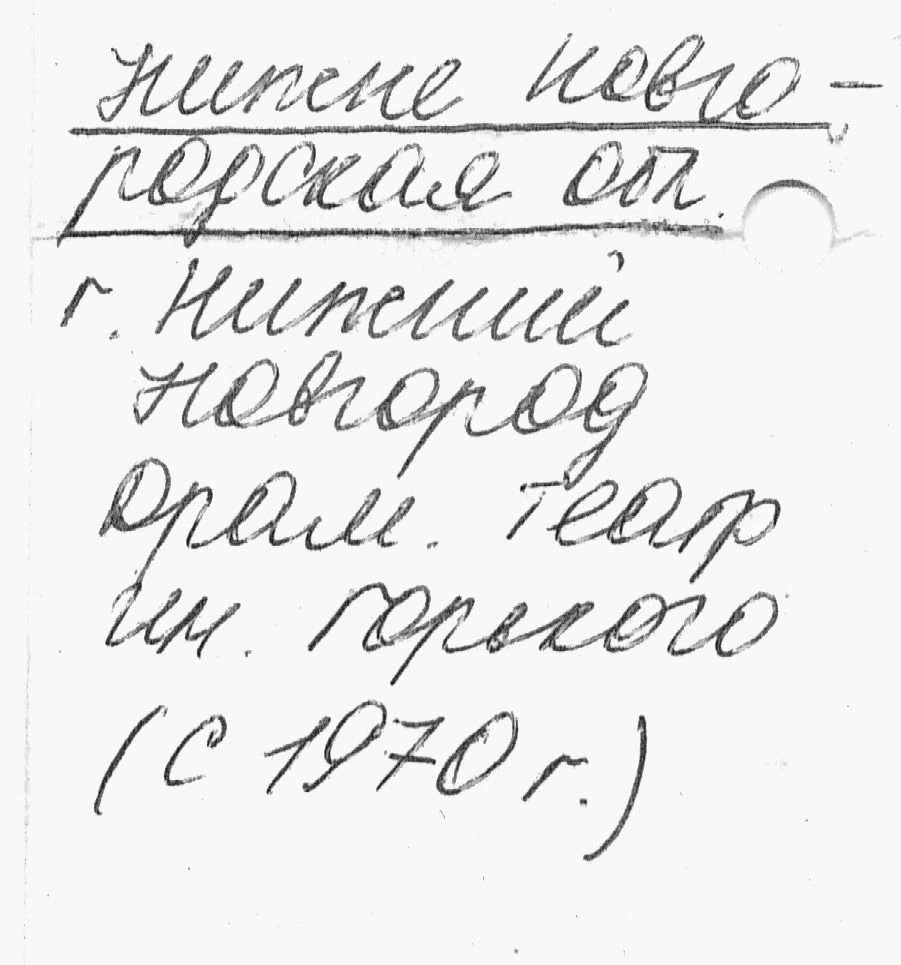 Нижне новго-
родская обл.
г. Нижний
Новгород
Драм. театр
им. Горького
(с 1970 г.)